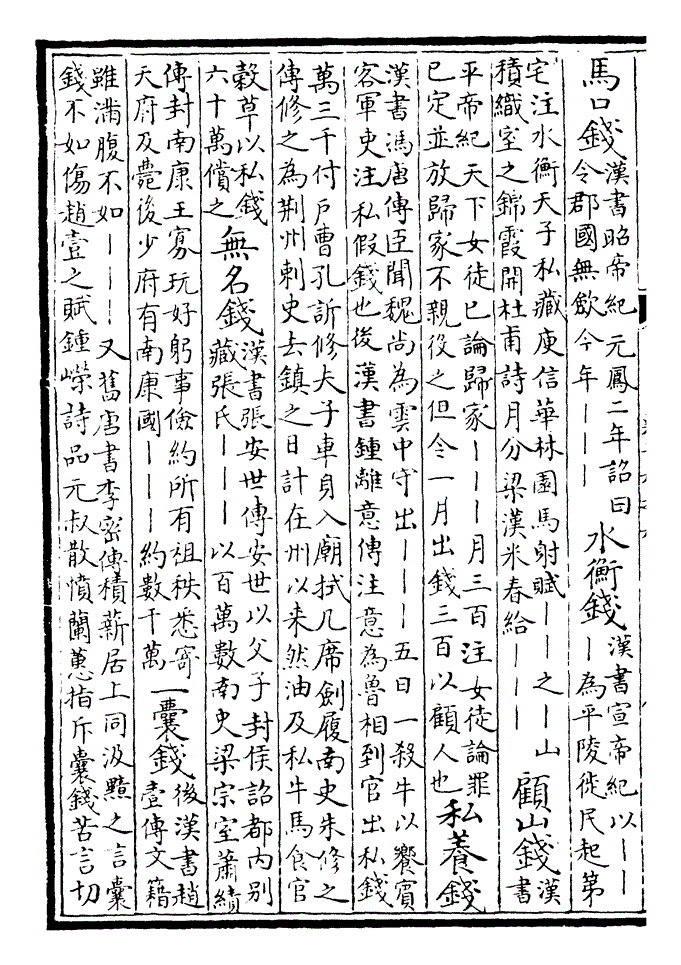 馬口錢
漢書昭帝紀元鳳二年詔曰
令郡國無斂今年｜｜｜
水衡錢
漢書宣帝紀以｜｜
｜為平陵徙民起第
宅注水衡天子私藏庾信華林園馬射賦｜｜之｜山
積織室之錦霞開杜甫詩月分梁漢米春給｜｜｜
顧山錢
漢
書
平帝紀天下女徒已論歸家｜｜｜月三百注女徒論罪
已定並放歸家不親役之但令一月出錢三百以顧人也
私養錢
漢書馮唐傳臣聞魏尚為雲中守出｜｜｜五日一殺牛以饗賓
客軍吏注私假錢也後漢書鍾離意傳注意為魯相到官出私錢
萬三千付戶曹孔訢修夫子車身入廟拭几席劍履南史朱修之
傳修之為荆州刺史去鎮之日計在州以来然油及私牛馬食官
穀草以私錢
六十萬償之
無名錢
漢書張安世傳安世以父子封侯詔都内别
藏張氏｜｜｜以百萬數南史梁宗室蕭績
傳封南康王寡玩好躬事儉約所有租秩悉寄
天府及薨後少府有南康國｜｜｜約數千萬
一囊錢
後漢書趙
壹傳文籍
雖滿腹不如｜｜｜｜又舊唐書李密傳積薪居上同汲黯之言囊
錢不如傷趙壹之賦鍾嶸詩品元叔散憤蘭蕙指斥囊錢苦言切